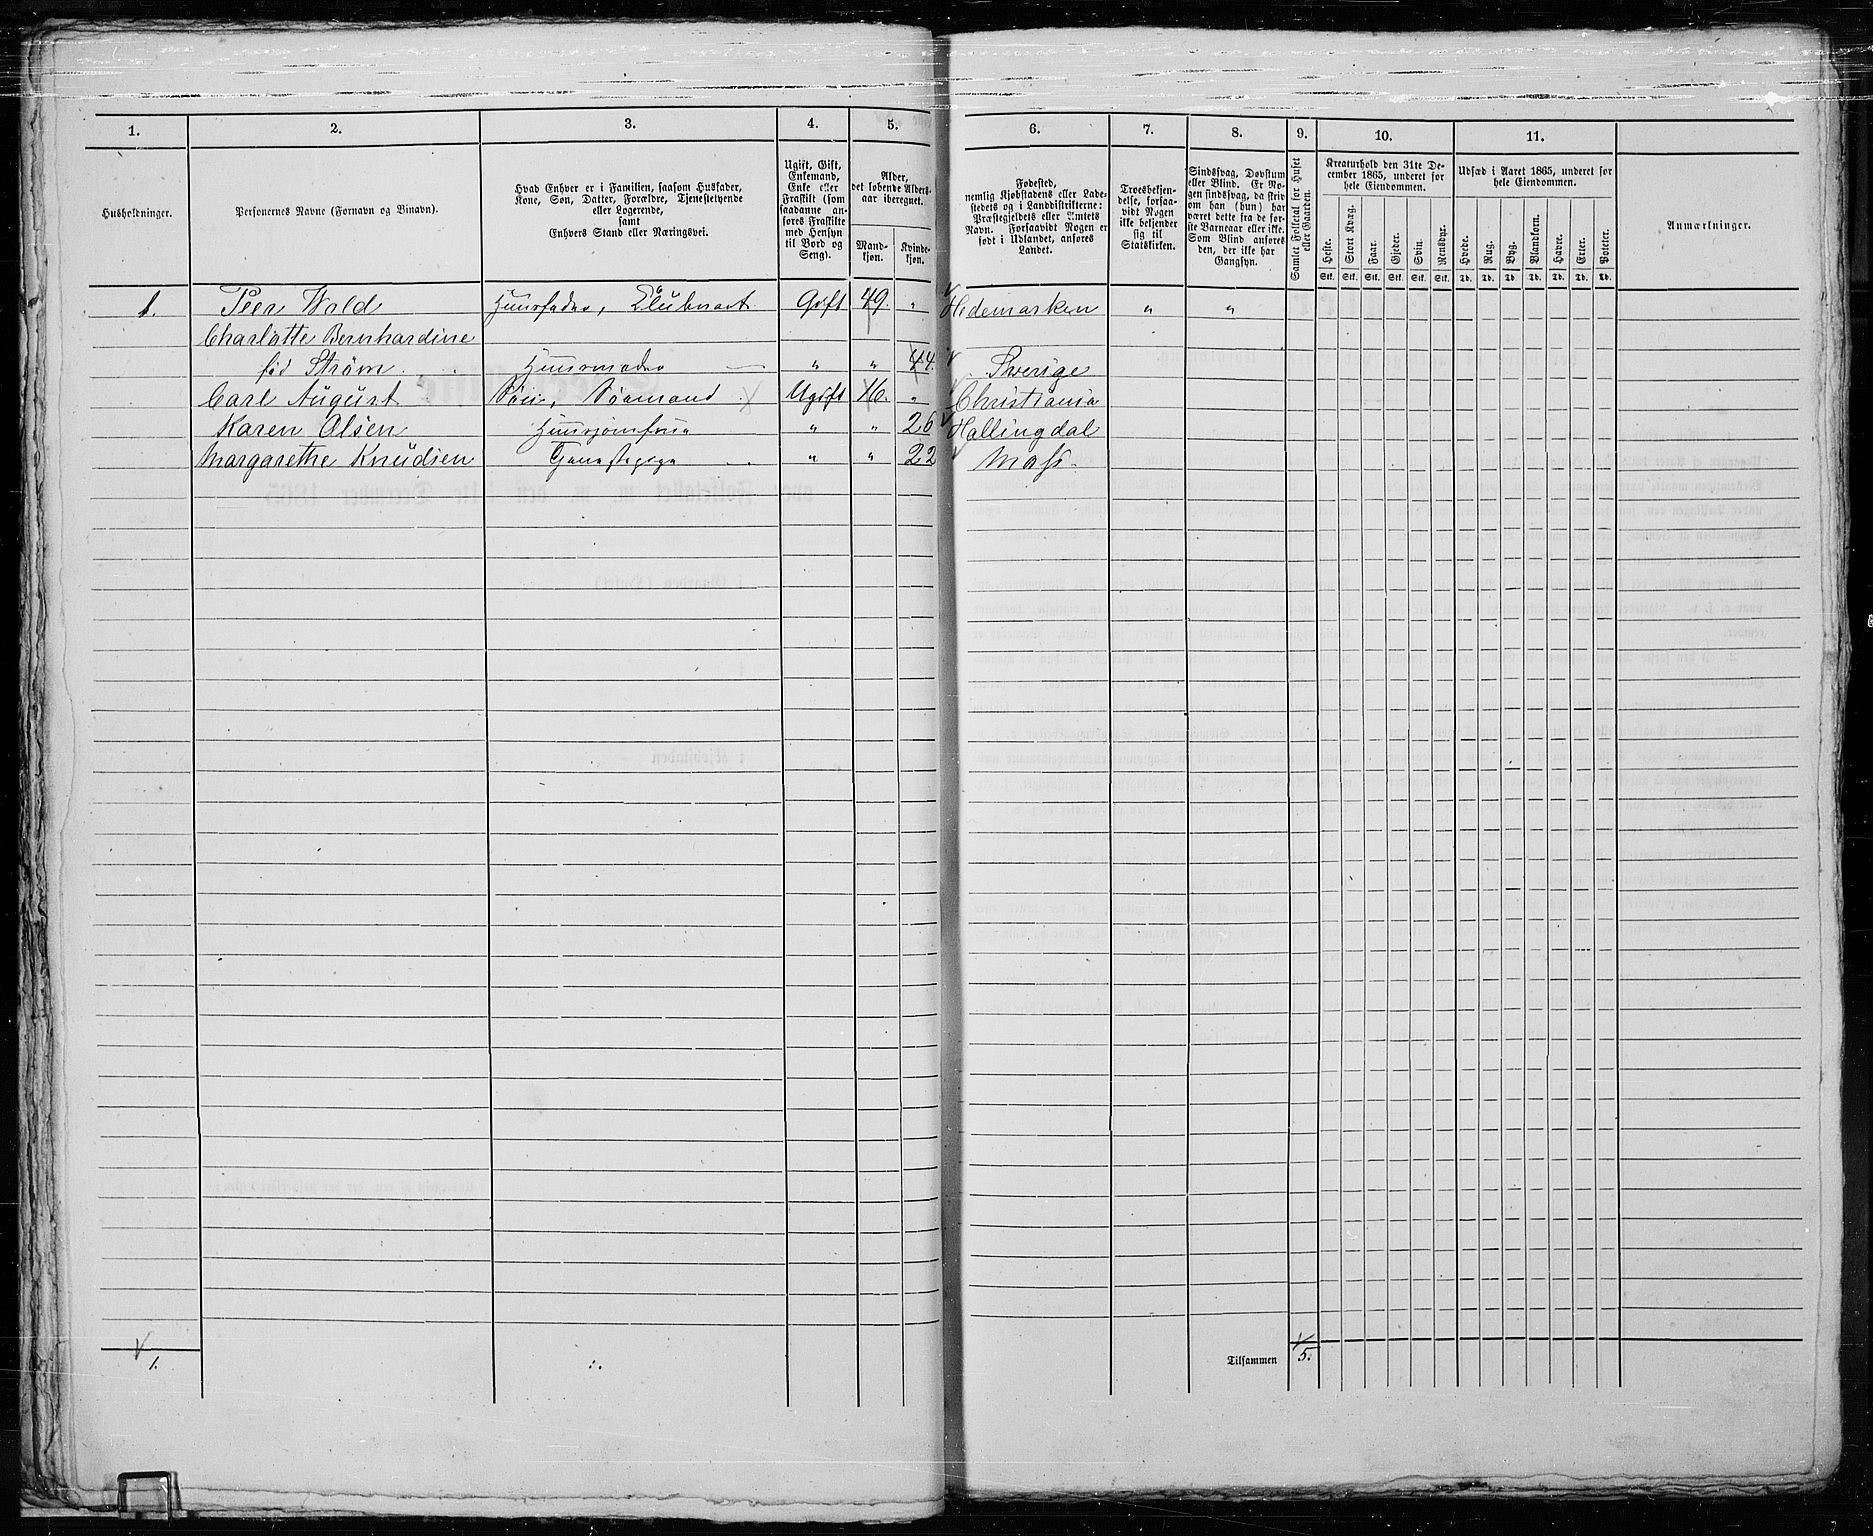 1. 2. 3. 4. 5. 6. 7. 8. 9. 10. 11.
Husholdninger.
Personernes Navne (Fornavn og Binavn).
Hvad Enhver er i Familien, saasom Husfader,
Kone, Søn, Datter, Forældre, Tjenestetyende
eller Logerende,
samt
Enhvers Stand eller Næringsvei.
Ugift, Gift,
Enkemand,
Enke eller
Fraskilt (som
saadanne an-
føres Fraskilte
med Hensyn
til Bord og
Seng).
Alder,
det løbende Alders-
aar iberegnet.
Mand-
kjøn.
Kvinde-
kjøn.
Fødested,
nemlig Kjøbstadens eller Lade-
stedets og i Landdistrikterne:
Præstegjeldets eller Amtets
Navn. Forsaavidt Nogen er
født i Udlandet, anføres
Landet.
Troesbekjen-
delse, forsaa-
vidt Nogen
ikke bekjender
sig til
Statskirken.
Sindssvag, Døvstum
eller Blind. Er No-
gen sindssvag, da skriv
om han (hun) har
været dette fra de før-
ste Barneaar eller ikke.
Som Blind anføres
den, der ikke har
Gangsyn.
Samlet Folketal for Huset
eller Gaarden.
Kreaturhold den 31te De-
cember 1865, underet for
hele Eiendommen.
Heste. Stort Kvæg. Faar. Gjeder. Svin. Rensdyr.
Stk. Stk. Stk. Stk. Stk. Stk.
Udsæd i Aaret 1865, underet for
hele Eiendommen.
Hvede. Rug. Byg. Blandkorn. Havre. Erter. Poteter.
Td. Td. Td. Td. Td. Td. Td.
Anmærkninger.
1. Peer Wold Huusfader, Klubvært Gift 49. " Hedemarken " "
Charlotte Bernhardine
fød Strøm. Huusmoder " " 44. Sverige
Carl August Søn, Sømand Ugift 16. " Christiania
Karen Olsen Huusjomfru " " 26 Hallingdal
Margarethe Knudsen Tjenestepige " " 22 Moss.
1. Tilsammen 5.